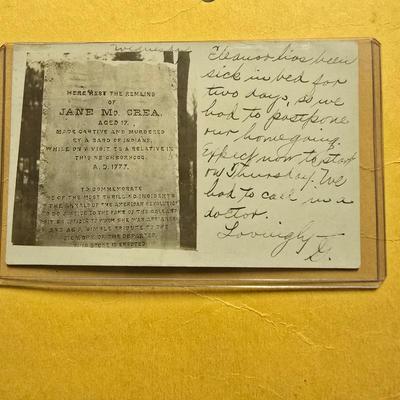 Wednesday
HERE REST THE REMAINS
OF
JANE Mc CREA,
AGED 17,
MADE CAPTIVE AND MURDERED
BY A BAND OF INDIANS,
WHILE ON A VISIT TO A RELATIVE IN
THIS NEIGHBORHOOD,
A.D. 1777.
TO COMMEMORATE
ONE OF THE MOST THRILLING INCIDENTS
IN THE ANNALS OF THE AMERICAN REVOLUTION
TO DO JUSTICE TO THE FAME OF THE GALLANT
TO WHOM SHE WAS AFFIANCED
AND AS A SIMPLE TRIBUTE TO THE
MEMORY OF THE DEPARTED,
THIS STONE IS ERECTED
Eleanor has been
sick in bed for
two days, so we
had to postpone
our home going.
Expect now to start
on Thursday. I've
had to call in a
doctor.
Lovingly
E.